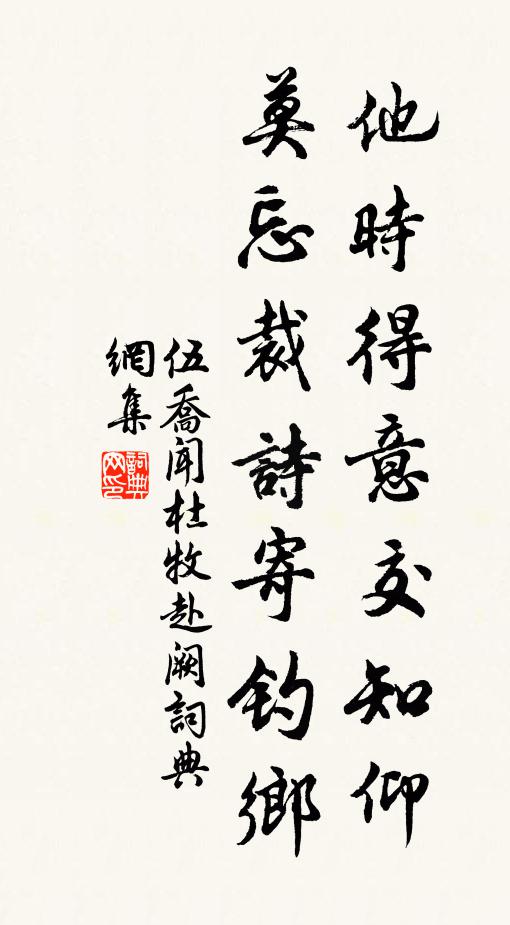 他時得意交知仰
莫忘裁詩寄釣鄉
伍喬聞杜牧赴闕詞典
網集
詞典
网印